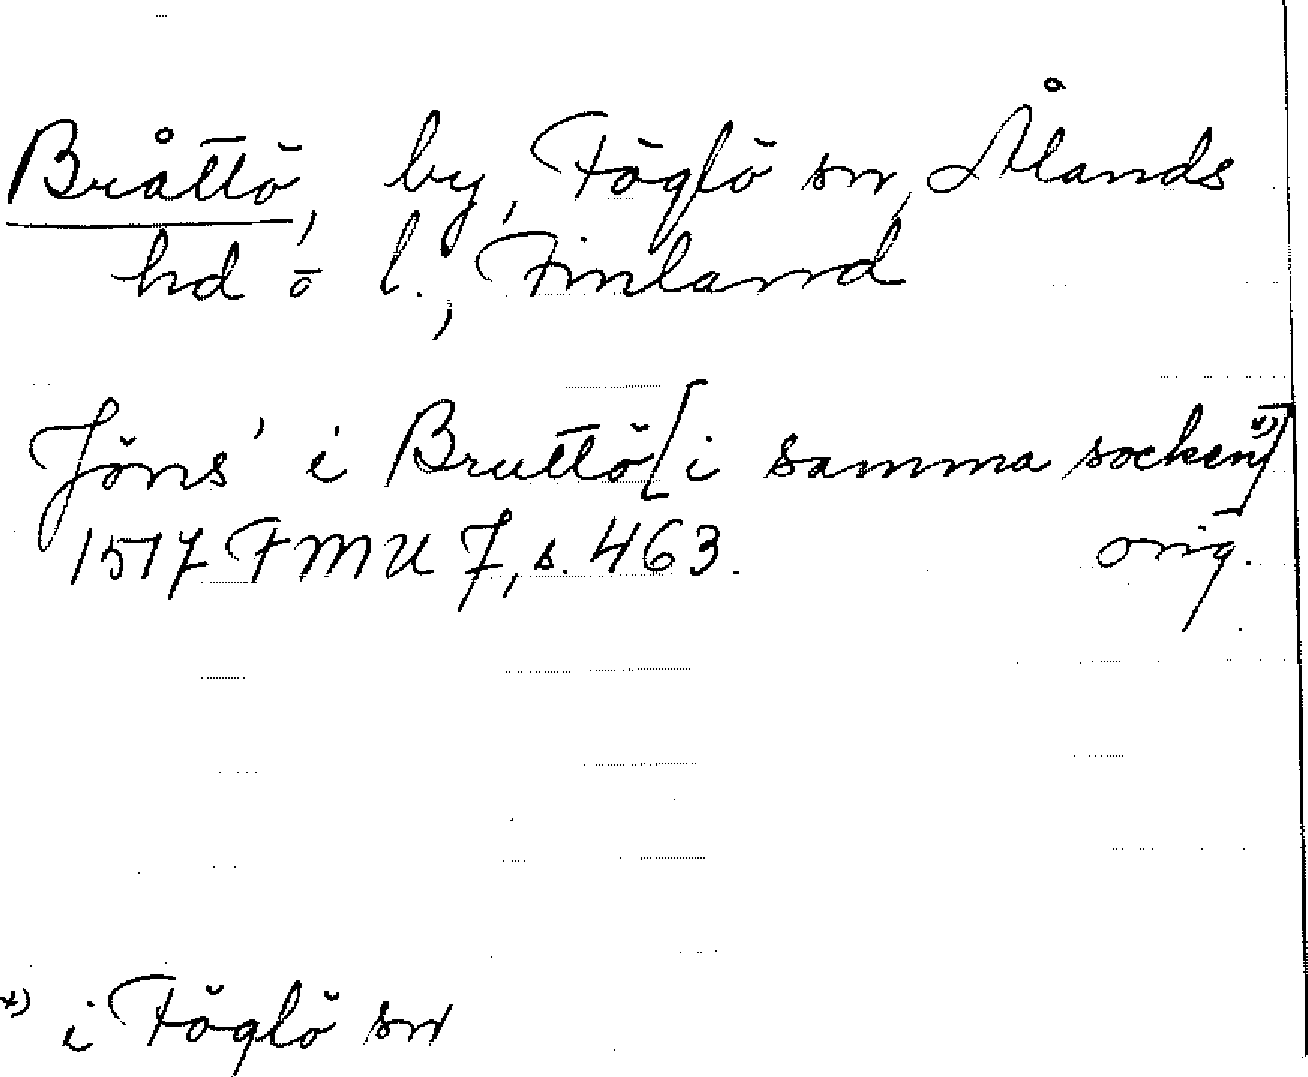 Bråttö, by, Föglö sn, Ålands
hd o l., Finland
Jöns' i Bruttö [i samma socken x)]
1517 FMU 7, s. 463. orig.
x) i Föglö sn